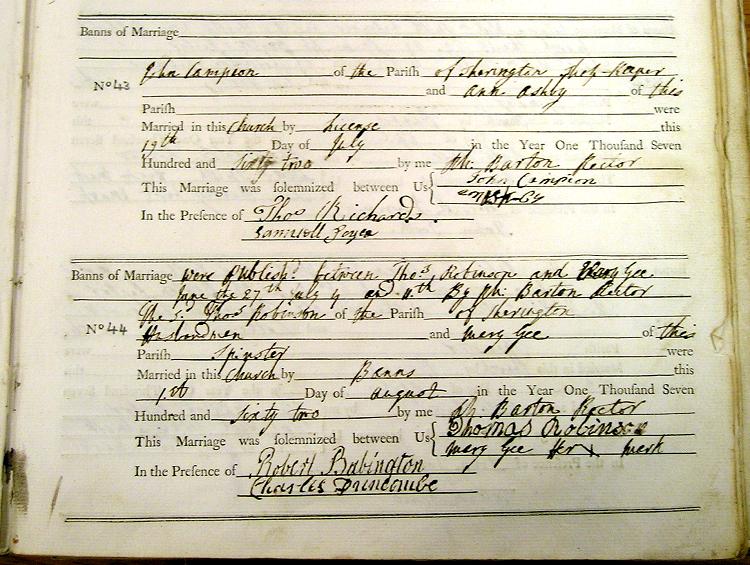 Banns of Marriage
John Campion of the Parish of Sherington Shop-Keper
No 43 and ann ashby of this
Parish were
Married in this Church by License this
19th Day of July in the Year One Thousand Seven
Hundred and Sixty two by me Barton Rector
This Marriage was solemnized between Us John Campion
In the Presence of Thos Richards
Samuell
Banns of Marriage were Publishd between Thos Robinson and Mary Gee
June the 27th July 4 and 11th By Barton Rector
The Sd Thos Robinson of the Parish of Sherington
No 44 Husbandman and Mary Gee of this
Parish Spinster were
Married in this Church by Banns this
1st Day of august in the Year One Thousand Seven
Hundred and Sixty two by me Barton Rector
This Marriage was solemnized between Us Thomas Robinson
Mary Gee Her x Mark
In the Presence of Robert Babington
Charles Duncombe